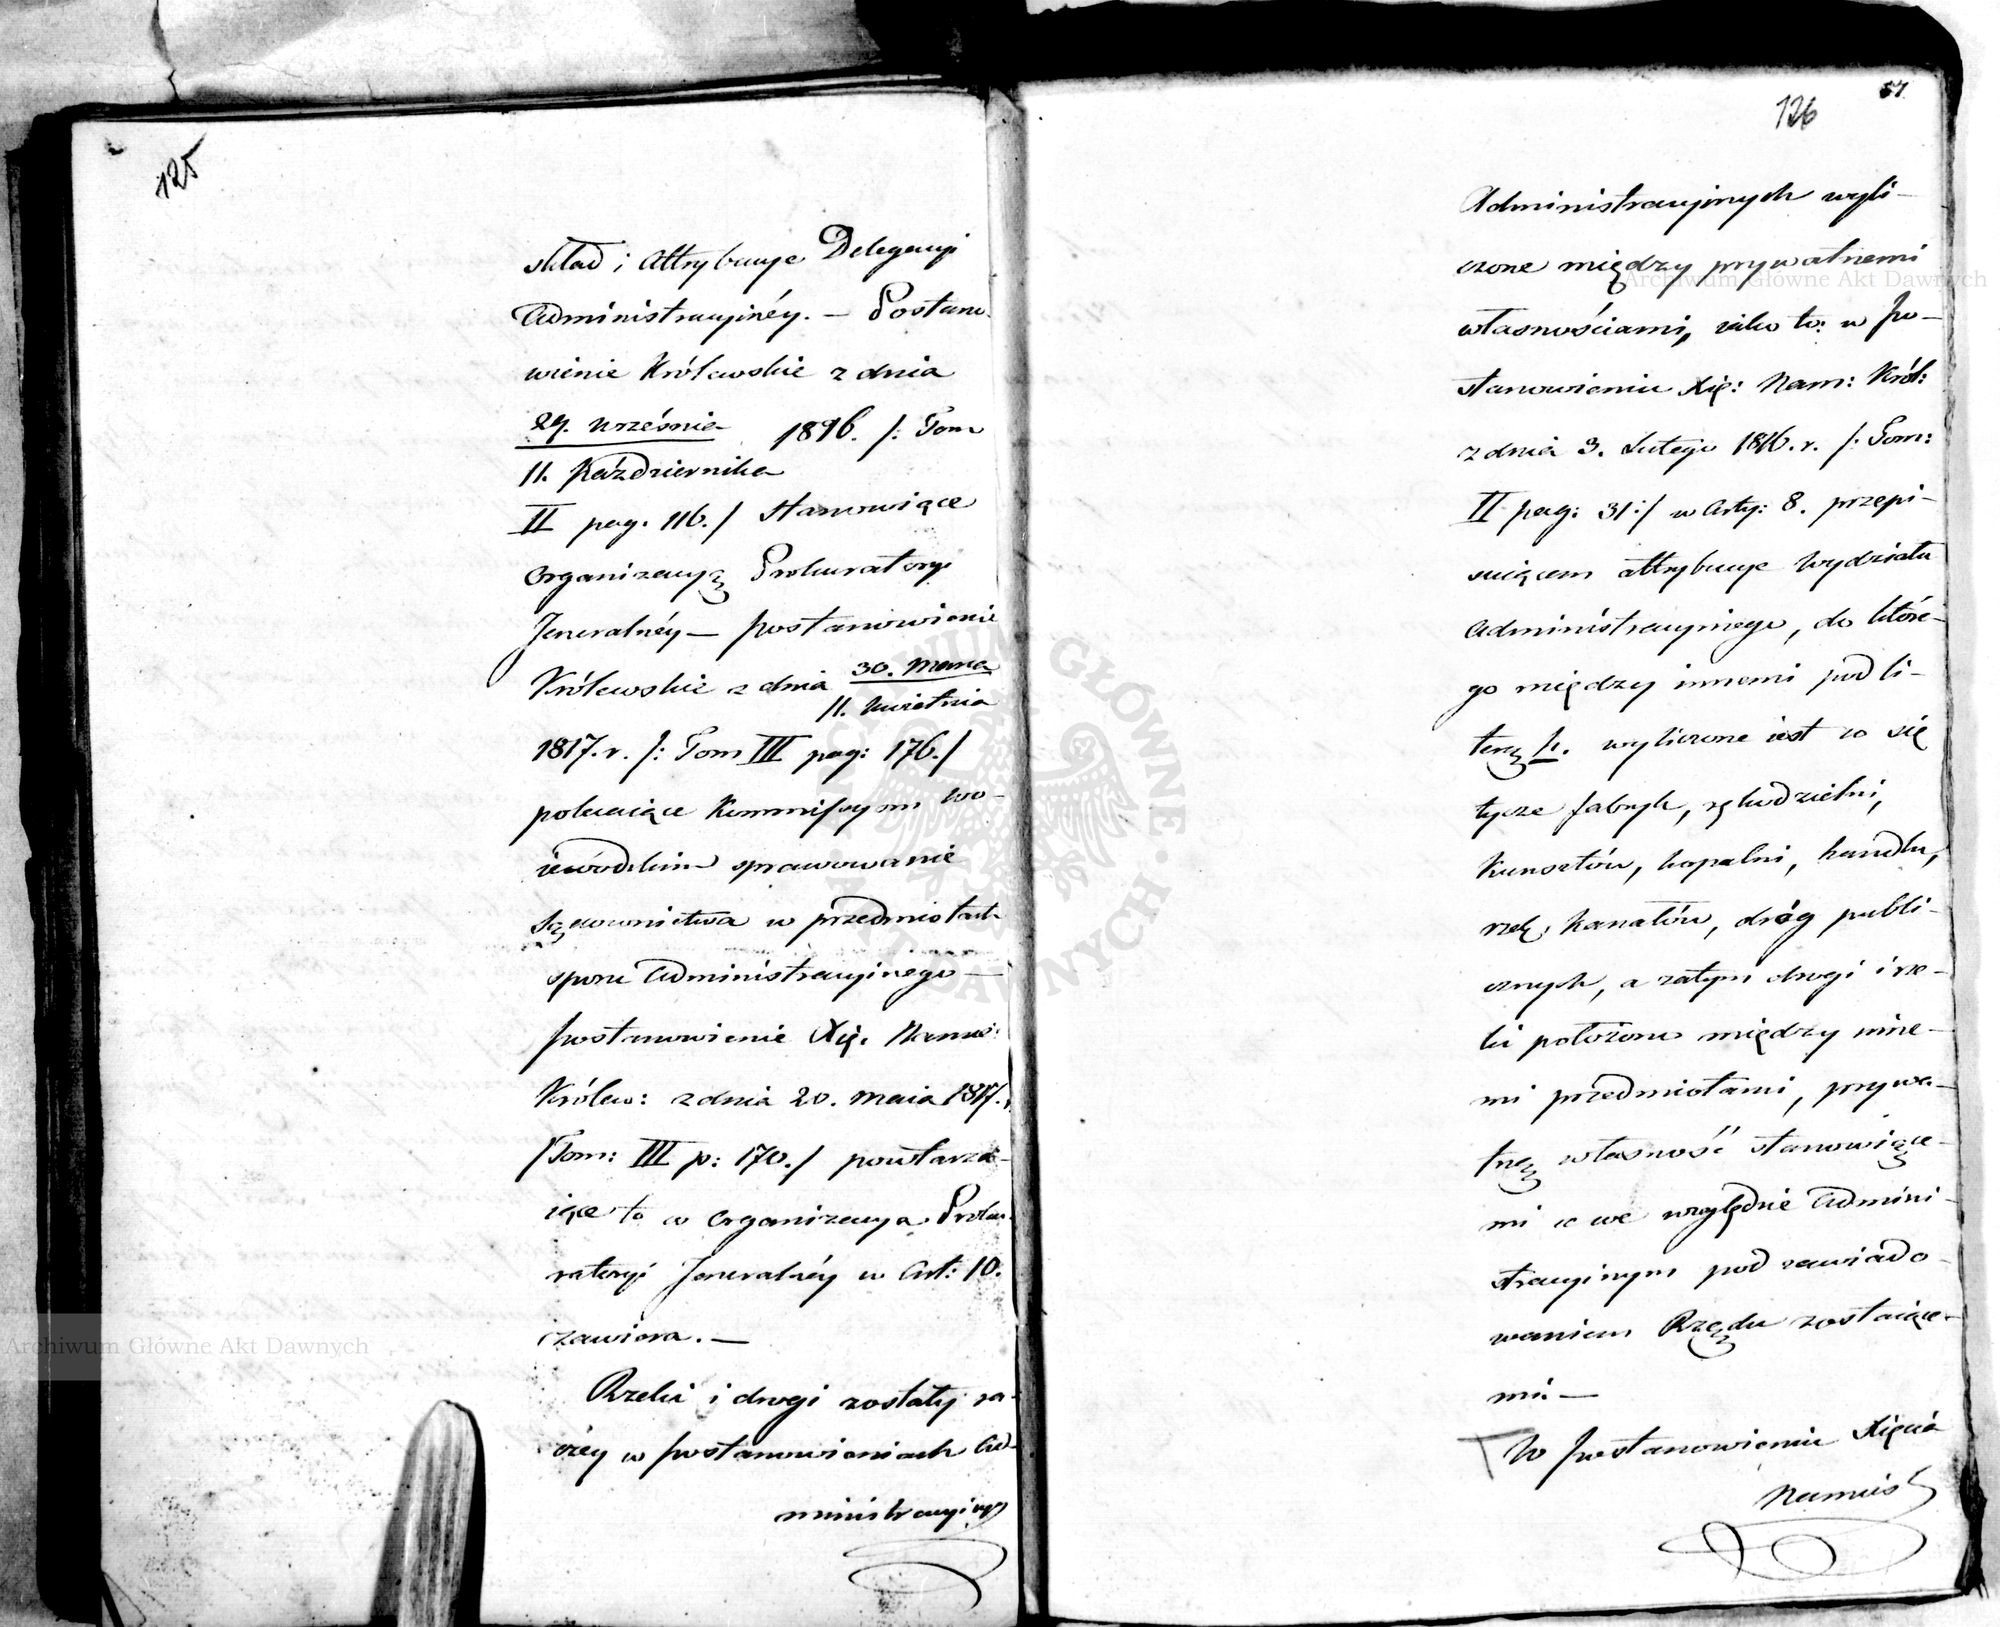 125
skład i Attrybucye Delegacyi
Administracyinéy. — Postano-
wienie Królewskie z dnia
29. września 1816. /: Tom
11. Października
II pag. 116./ stanowiące
Organizacyą Prokuratoryi
Jeneralnéy — postanowienie
Królewskie z dnia 30. Marca
11. Kwietnia
1817. r. /: Tom III pag: 176./
polecaiące Kommissyom Wo-
iewódzkim sprawowanie
Sądownictwa w przedmiotach
sporu Administracyinego —
postanowienie Xię. Namies:
Królew: z dnia 20. Maia 1817. r.
/Tom: III p: 170./ powtarza-
iące to co Organizacya Proku-
ratoryi Jeneralnéy w Art: 10.
zawiera. —
Rzeki i drogi zostały ra-
czey w postanowieniach Ad-
ministracyinych
57
126
Administracyinych wyli-
czone między prywatnemi
własnościami, iako to: w po-
stanowieniu Xię: Nam: Król:
z dnia 3. Lutego 1816. r. /: Tom:
II pag: 31:/ w Arty: 8. przepi-
suiącem attrybucye Wydziału
Administracyinego, do które-
go między innemi pod li-
terą h. wyliczone iest co się
tycze fabryk, rękodzielni,
Kunsztów, kopalni, handlu,
rzek, kanałów, dróg publi-
cznych, a zatym drogi i rze-
ki położono między inne-
mi przedmiotami, prywa-
tną własność stanowiące-
mi a we względzie Admini-
stracyinym pod zawiado-
waniem Rządu zostaiące-
mi —
W postanowieniu Xięcia
Namies
Archiwum Główne Akt Dawnych
Archiwum Główne Akt Dawnych
ARCHIWUM GŁÓWNE AKT DAWNYCH